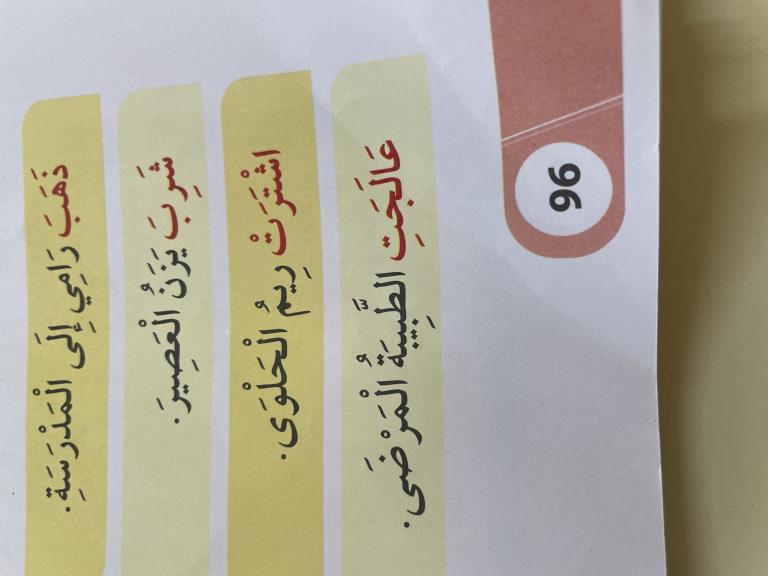 ذَهَبَ رَامِي إِلَى الْمَدْرَسَةِ.
شَرِبَ يَزَنُ الْعَصِيرَ.
اشْتَرَتْ رِيمُ الْحَلْوَى.
عَالَجَتِ الطَّبِيبَةُ الْمَرْضَى.
96